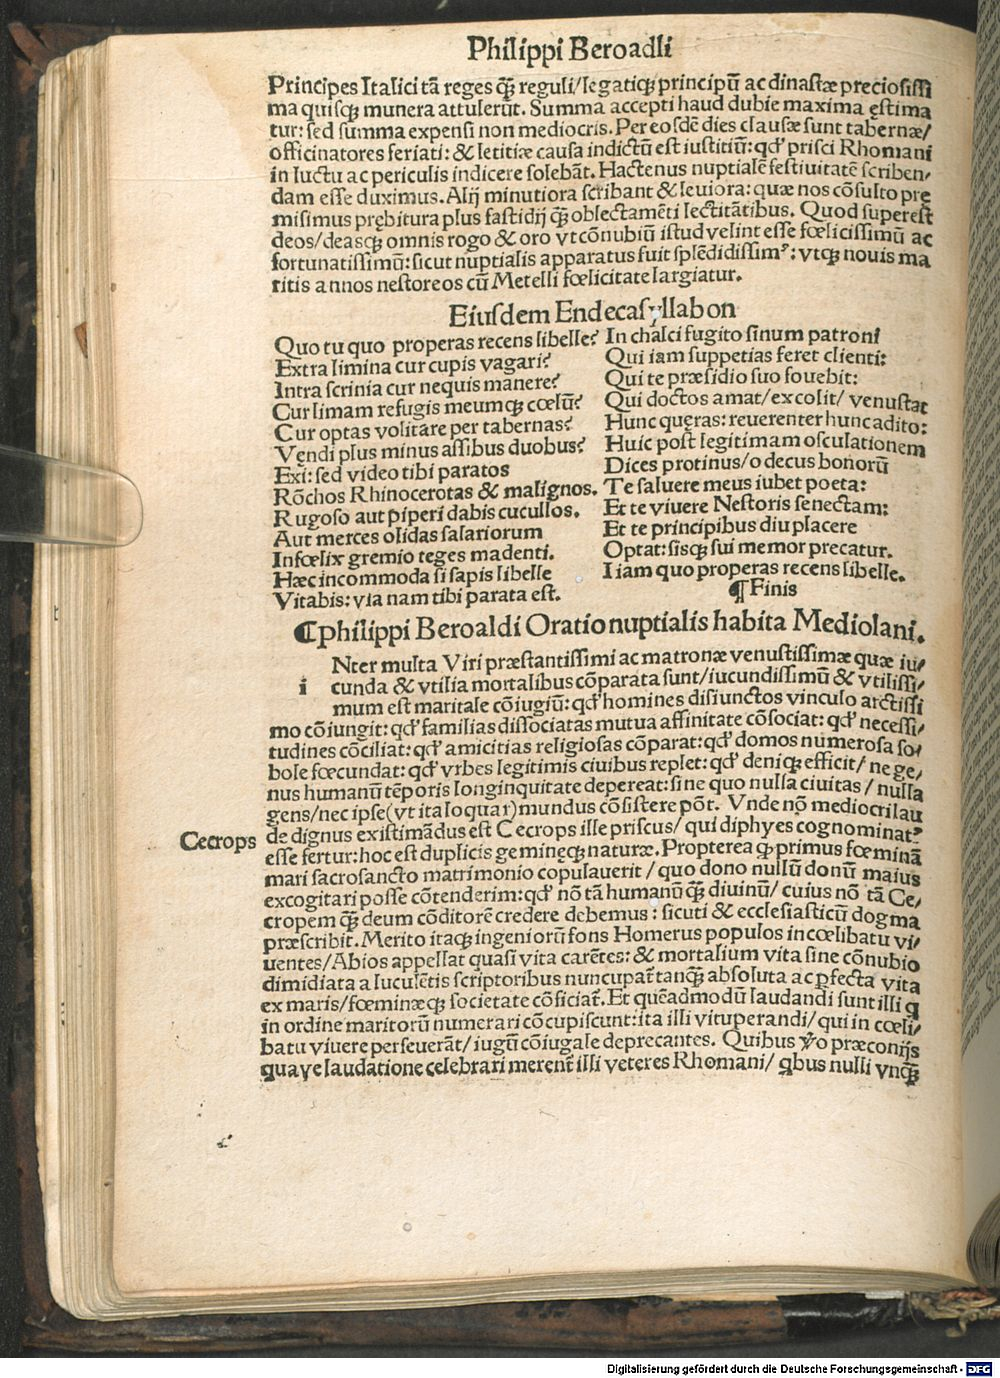 Philippi Beroadli
Principes Italici tã reges q̃ꝫ reguli/legatiqꝫ principũ ac dinastæ preciosissi
ma quisqꝫ munera attulerũt. Summa accepti haud dubie maxima ęstima
tur: sed summa expensi non mediocris. Per eosdẽ dies clausæ sunt tabernæ/
officinatores feriati: & letitiæ causa indictũ est iustitiũ: qd' prisci Rhomani
in luctu ac periculis indicere solebãt. Hactenus nuptialẽ festiuitatẽ scriben/
dam esse duximus. Alij minutiora scribant & leuiora: quæ nos cõsulto prę
misimus prębitura plus fastidij q̃ꝫ oblectamẽti lectitãtibus. Quod superest
deos/deasqꝫ omnis rogo & oro vt cõnubiũ istud velint esse fœlicissimũ ac
fortunatissimũ: sicut nuptialis apparatus fuit splẽdidissimꝰ: vtqꝫ nouis ma
ritis annos nestoreos cũ Metelli fœlicitate largiatur.
Eiusdem Endecasyllabon
Quo tu quo properas recens libelle?
Extra limina cur cupis vagari?
Intra scrinia cur nequis manere?
Cur limam refugis meumqꝫ cœlũ?
Cur optas volitare per tabernas?
Vęndi plus minus assibus duobus?
Exi: sed video tibi paratos
Rõchos Rhinocerotas & malignos.
Rugoso aut piperi dabis cucullos.
Aut merces olidas salariorum
Infœlix gremio teges madenti.
Hæc incommoda si sapis libelle
Vitabis: via nam tibi parata est.
In chalci fugito sinum patroni
Qui iam suppetias feret clienti:
Qui te præsidio suo fouebit:
Qui doctos amat/excolit/ venustat
Hunc quęras: reuerenter hunc adito:
Huic post legitimam osculationem
Dices protinus/o decus bonorũ
Te saluere meus iubet poeta:
Et te viuere Nestoris senectam:
Et te principibus diu placere
Optat: sisqꝫ sui memor precatur.
I iam quo properas recens libelle.
¶ Finis
¶philippi Beroaldi Oratio nuptialis habita Mediolani.
i Nter multa Viri præstantissimi ac matronæ venustissimæ quæ iu/
cunda & vtilia mortalibus cõparata sunt/iucundissimũ & vtilissi/
mum est maritale cõiugiũ: qd' homines disiunctos vinculo arctissi
mo cõiungit: qd' familias dissociatas mutua affinitate cõsociat: qd' necessi/
tudines cõciliat: qd' amicitias religiosas cõparat: qd' domos numerosa so/
bole fœcundat: qd' vrbes legitimis ciuibus replet: qd' deniqꝫ efficit/ ne ge/
nus humanũ tẽporis longinquitate depereat: sine quo nulla ciuitas / nulla
gens/nec ipse(vt ita loquar)mundus cõsistere põt. Vnde nõ mediocri lau
Cecrops
de dignus existimãdus est Cecrops ille priscus/ qui diphyes cognominatꝰ
esse fertur: hoc est duplicis gemineqꝫ naturæ. Propterea ꝙ primus fœminã
mari sacrosancto matrimonio copulauerit / quo dono nullũ donũ maius
excogitari posse cõtenderim: qd' nõ tã humanũ q̃ꝫ diuinũ/ cuius nõ tã Ce/
cropem q̃ꝫ deum cõditorẽ credere debemus : sicuti & ecclesiasticũ dogma
præscribit. Merito itaqꝫ ingeniorũ fons Homerus populos in cœlibatu vi/
uentes/Abios appellat quasi vita carẽtes: & mortalium vita sine cõnubio
dimidiata a luculẽtis scriptoribus nuncupat̃ tanq̃ꝫ absoluta ac ꝑfecta vita
ex maris/fœminæqꝫ societate cõficiat̃. Et quẽadmodũ laudandi sunt illi q
in ordine maritorũ numerari cõcupiscunt: ita illi vituperandi/ qui in cœli/
batu viuere perseuerãt/ iugũ cõiugale deprecantes. Quibus v̓o præconijs
quaue laudatione celebrari merent̃ illi veteres Rhomani/ qbus nulli vnq̃ꝫ
Digitalisierung gefördert durch die Deutsche Forschungsgemeinschaft - DFG